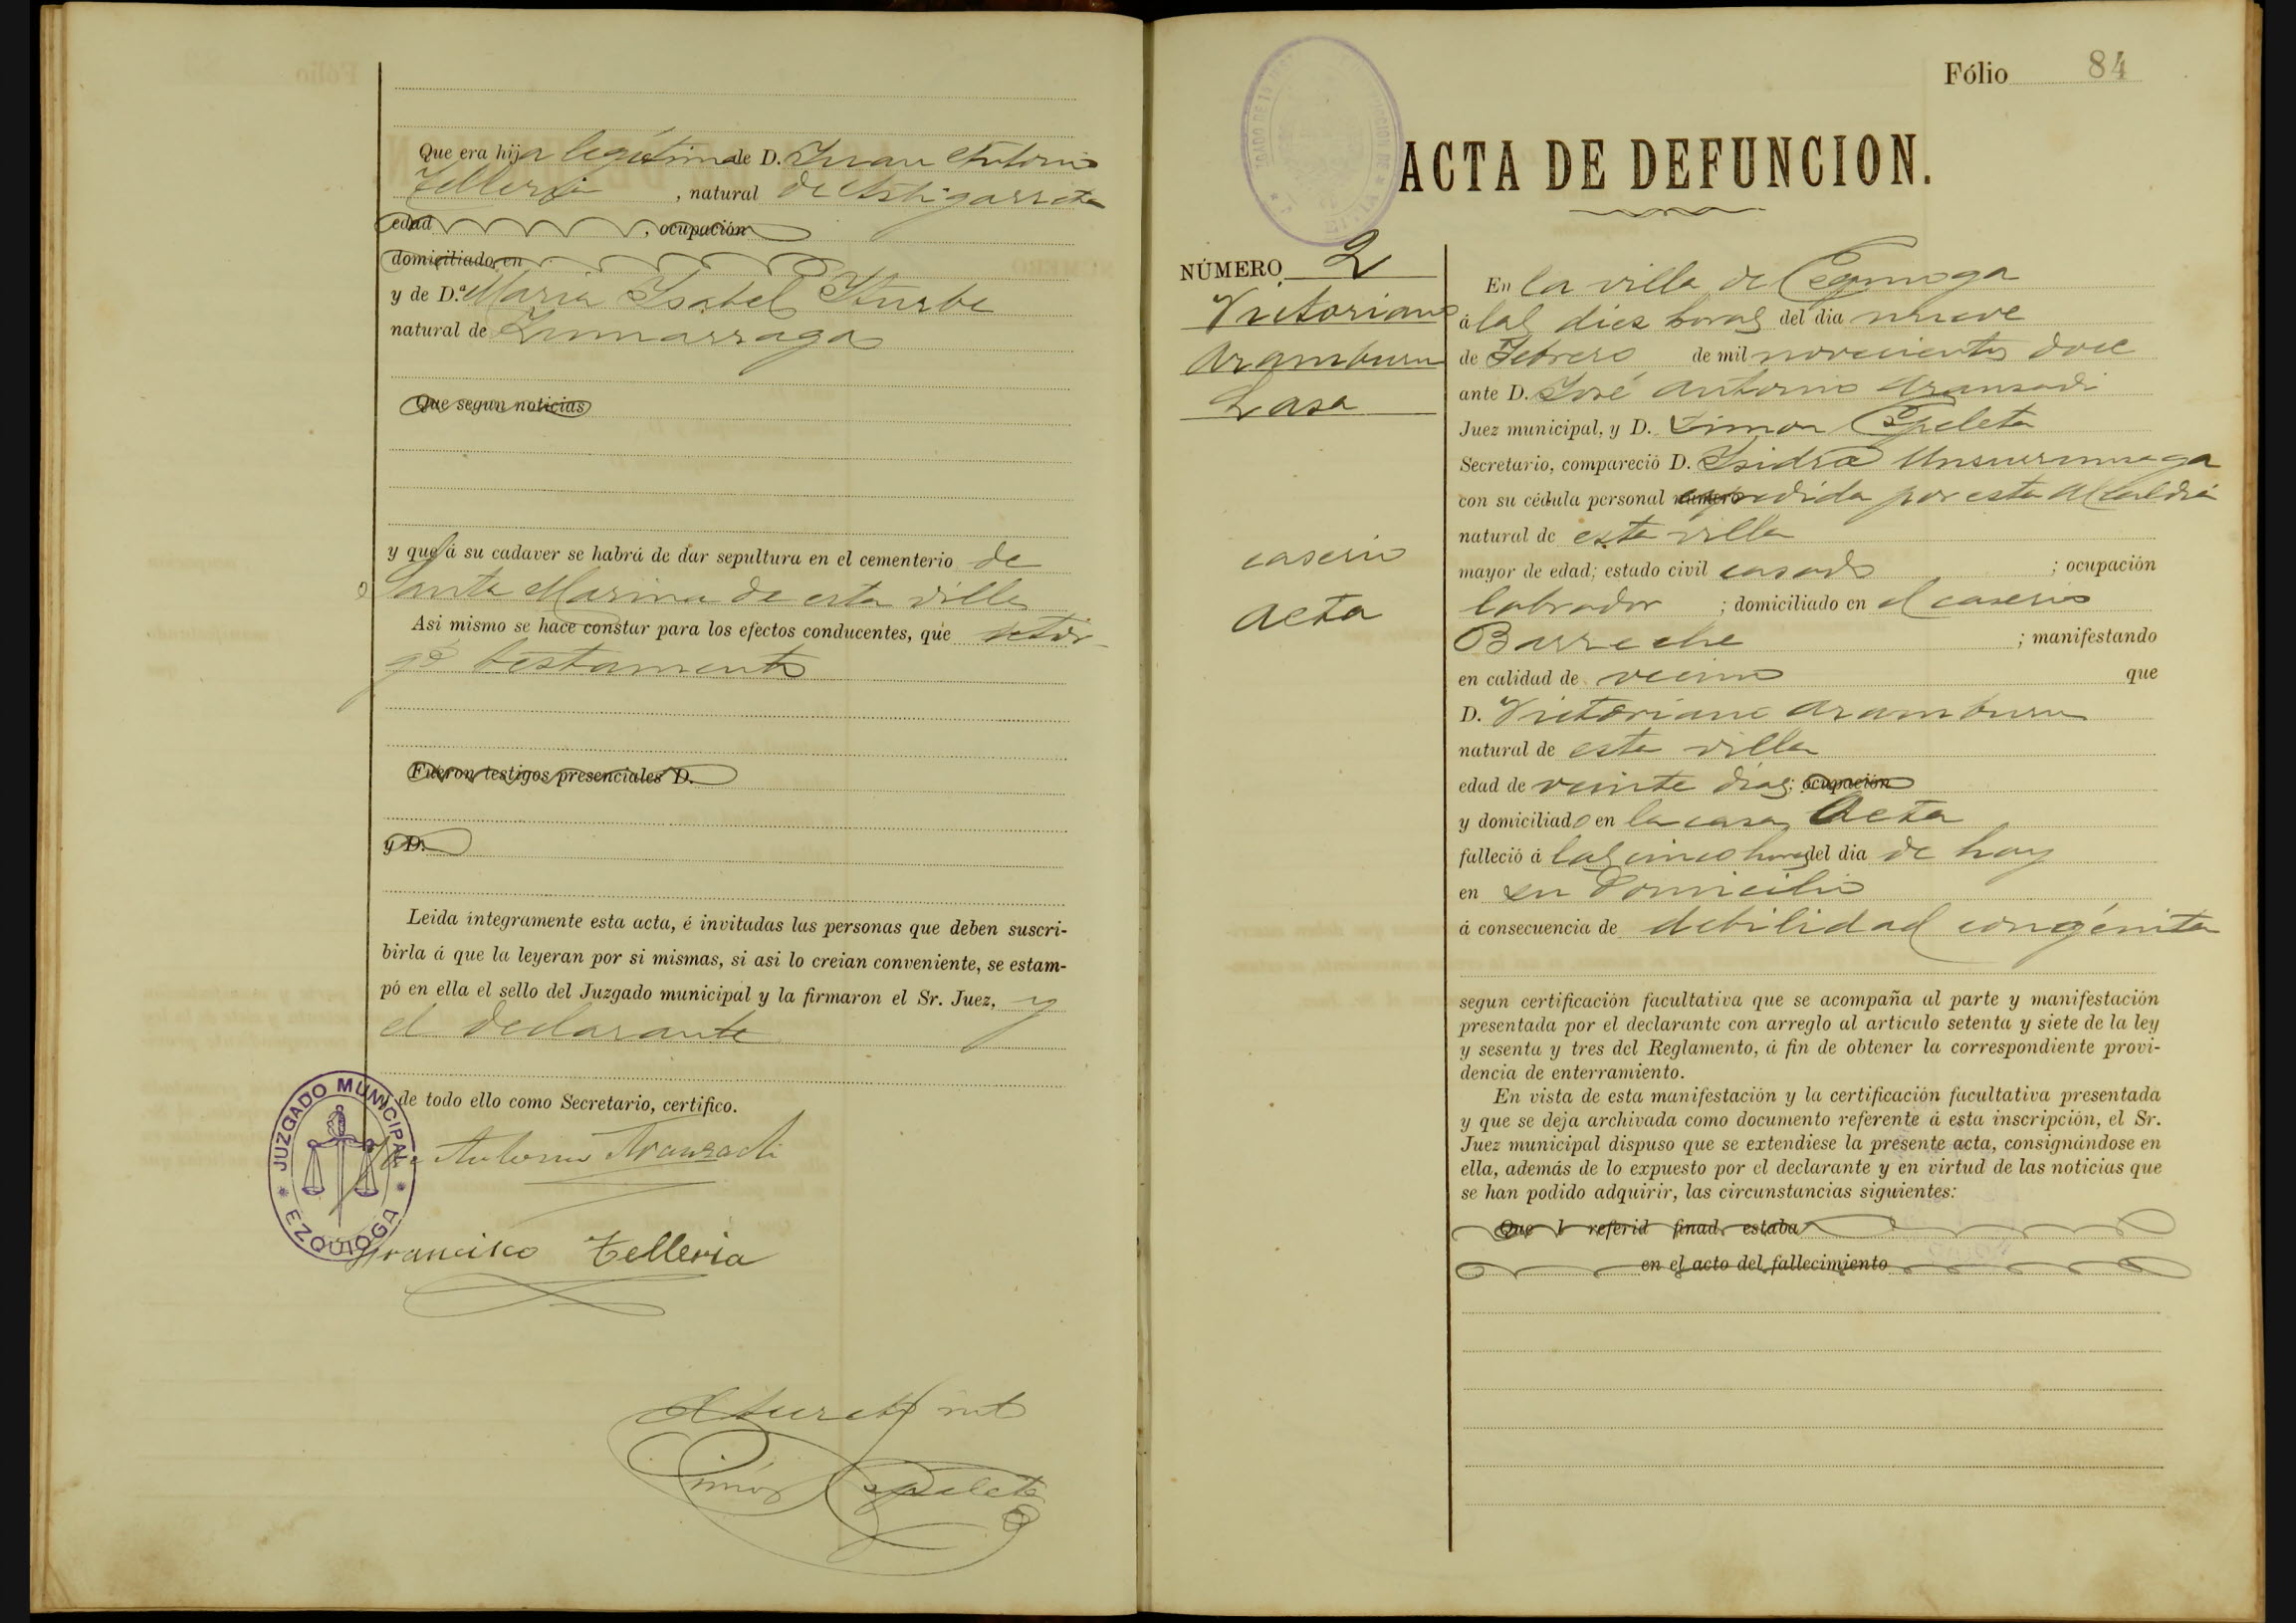 Que era hija legítima de D. Juan Antonio
Telleria, natural de Astigarreta
edad, ocupación
domiciliado en
y de D.ª Maria Isabel Iturbe
natural de Zumarraga
Que segun noticias
y que á su cadaver se habrá de dar sepultura en el cementerio de
Santa Marina de esta villa
Asi mismo se hace constar para los efectos conducentes, que otor-
gó testamento
Fueron testigos presenciales D.
y D.
Leida íntegramente esta acta, é invitadas las personas que deben suscri-
birla á que la leyeran por si mismas, si asi lo creian conveniente, se estam-
pó en ella el sello del Juzgado municipal y la firmaron el Sr. Juez, y
el declarante
y de todo ello como Secretario, certifico.
JUZGADO MUNICIPAL
EZQUIOGA
José Antonio Aranzadi
Francisco Telleria
Simón Ezpeleta
Fólio 84
ACTA DE DEFUNCION.
NÚMERO 2
Victoriano
Aramburu
Lasa
caserio
Acta
En la villa de Ezquioga
á las diez horas del dia nueve
de Febrero de mil novecientos doce
ante D. José Antonio Aranzadi
Juez municipal, y D. Simon Ezpeleta
Secretario, compareció D. Isidro Unsurrunzaga
con su cédula personal número expedida por esta Alcaldia
natural de esta villa
mayor de edad; estado civil casado; ocupación
labrador; domiciliado en el caserio
Barreche; manifestando
en calidad de vecino que
D. Victoriano Aramburu
natural de esta villa
edad de veinte dias; ocupación
y domiciliado en la casa Acta
falleció á las cinco horas del dia de hoy
en su domicilio
á consecuencia de debilidad congénita
segun certificación facultativa que se acompaña al parte y manifestación
presentada por el declarante con arreglo al artículo setenta y siete de la ley
y sesenta y tres del Reglamento, á fin de obtener la correspondiente provi-
dencia de enterramiento.
En vista de esta manifestación y la certificación facultativa presentada
y que se deja archivada como documento referente á esta inscripción, el Sr.
Juez municipal dispuso que se extendiese la presente acta, consignándose en
ella, además de lo expuesto por el declarante y en virtud de las noticias que
se han podido adquirir, las circunstancias siguientes:
Que l referid finad estaba
en el acto del fallecimiento